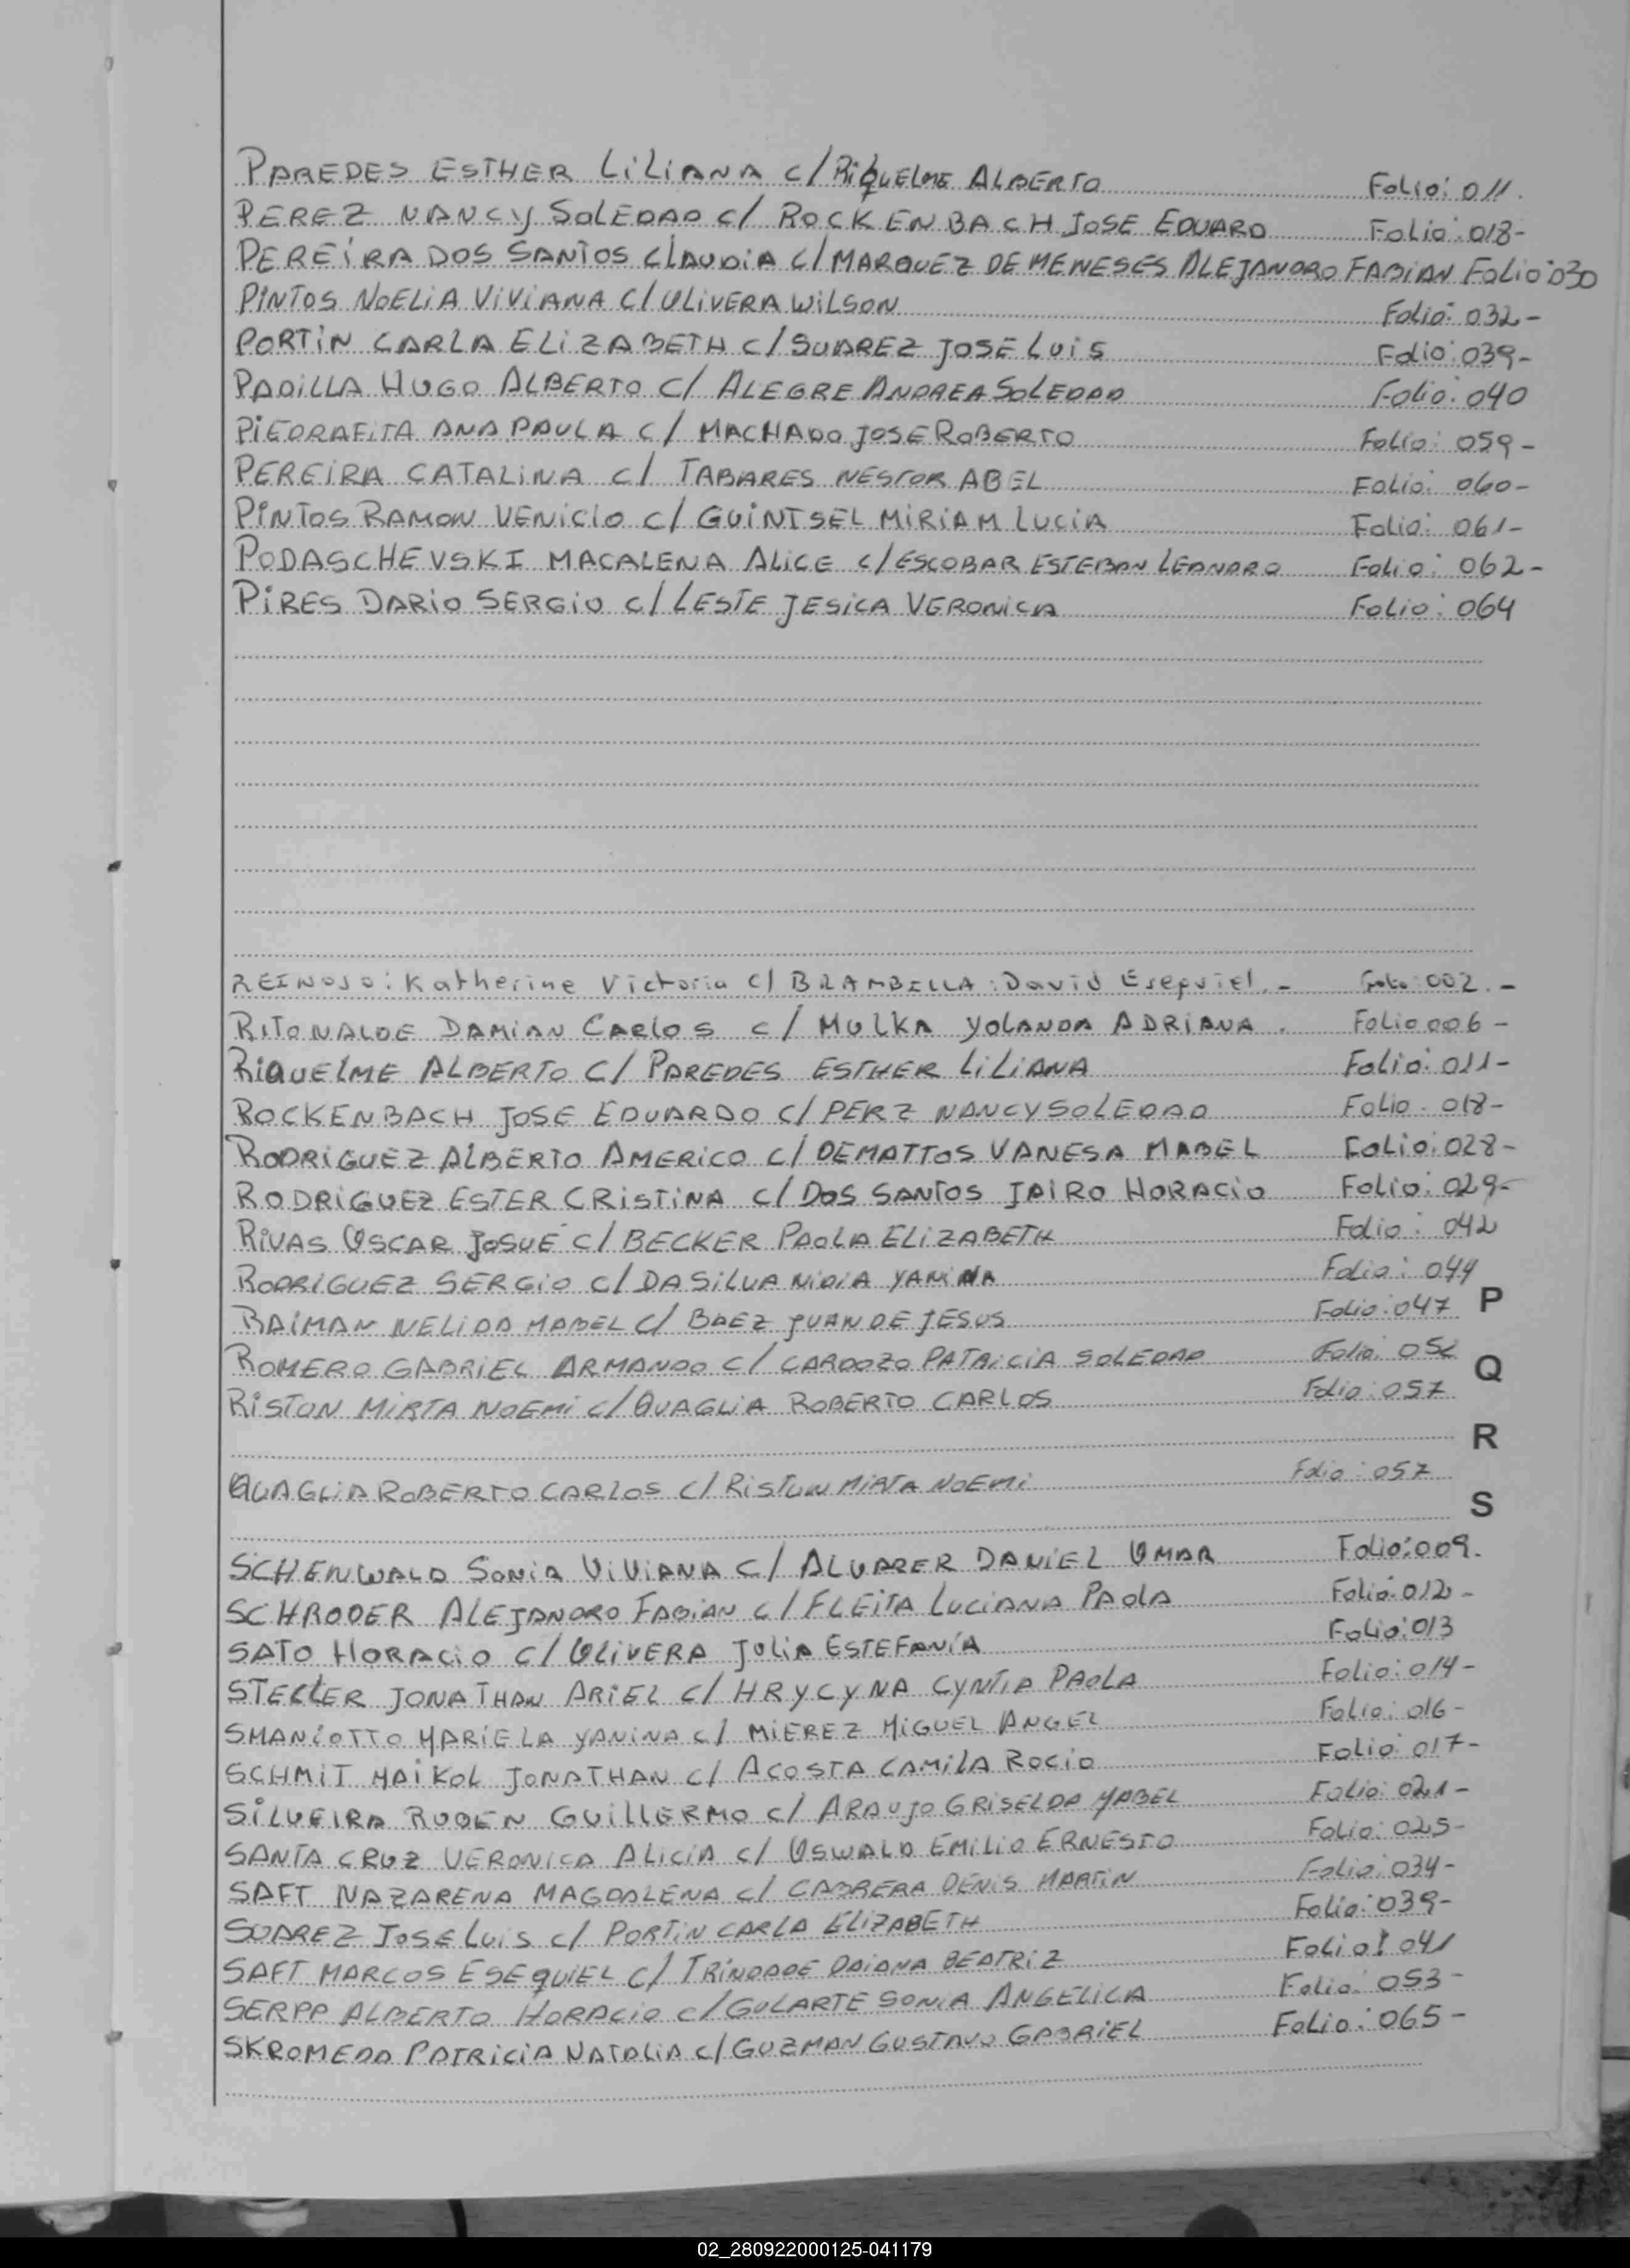 PAREDES ESTHER LILIANA c/ RIQUELME ALBERTO Folio: 011.
PEREZ NANCY SOLEDAD c/ ROCKENBACH JOSE EDUARD Folio: 018-
PEREIRA DOS SANTOS CLAUDIA c/ MARQUEZ DE MENESES ALEJANDRO FABIAN Folio: 030
PINTOS NOELIA VIVIANA c/ OLIVERA WILSON Folio: 032-
PORTIN CARLA ELIZABETH c/ SUAREZ JOSE LUIS Folio: 039-
PADILLA HUGO ALBERTO c/ ALEGRE ANDREA SOLEDAD Folio: 040
PIEDRAFITA ANA PAULA c/ MACHADO JOSE ROBERTO Folio: 059-
PEREIRA CATALINA c/ TABARES NESTOR ABEL Folio: 060-
PINTOS RAMON VENICIO c/ GUINTSEL MIRIAM LUCIA Folio: 061-
PODASCHEVSKI MACALENA ALICE c/ ESCOBAR ESTEBAN LEANDRO Folio: 062-
PIRES DARIO SERGIO c/ LESTE JESICA VERONICA Folio: 064
REINOSO: Katherine Victoria c/ BRAMBILLA: David Esequiel.- Folio: 002.-
RITONALDE DAMIAN CARLOS c/ MULKA YOLANDA ADRIANA. Folio 006-
RIQUELME ALBERTO c/ PAREDES ESTHER LILIANA Folio: 011-
ROCKENBACH JOSE EDUARDO c/ PERZ NANCY SOLEDAD Folio. 018-
RODRIGUEZ ALBERTO AMERICO c/ DEMATTOS VANESA MABEL Folio: 028-
RODRIGUEZ ESTER CRISTINA c/ DOS SANTOS JAIRO HORACIO Folio: 029-
RIVAS OSCAR JOSUE c/ BECKER PAOLA ELIZABETH Folio: 042
RODRIGUEZ SERGIO c/ DA SILVA NIDIA YANINA Folio: 044
RAIMAN NELIDA MABEL c/ BAEZ JUAN DE JESUS Folio: 047 P
ROMERO GABRIEL ARMANDO c/ CARDOZO PATRICIA SOLEDAD Folio:
Q
RISTON MIRTA NOEMI c/ QUAGLIA ROBERTO CARLOS Folio: 057
R
QUAGLIA ROBERTO CARLOS c/ RISTON MIRTA NOEMI Folio: 057
S
SCHENWALD SONIA VIVIANA c/ ALVARER DANIEL OMAR Folio: 009.
SCHRODER ALEJANDRO FABIAN c/ FLEITA LUCIANA PAOLA Folio: 012-
SATO HORACIO c/ OLIVERA JULIA ESTEFANÍA Folio: 013
JONATHAN ARIEL c/ HRYCYNA CYNTIA PAOLA Folio: 014-
SMANIOTTO MARIELA YANINA c/ MIEREZ MIGUEL ANGEL Folio: 016-
SCHMIT MAIKOL JONATHAN c/ ACOSTA CAMILA ROCIO Folio: 017-
SILVEIRA RUBEN GUILLERMO c/ ARAUJO GRISELDA MABEL Folio: 021-
SANTA CRUZ VERONICA ALICIA c/ OSWALD EMILIO ERNESTO Folio: 025-
SAFT NAZARENA MAGDALENA c/ CABRERA DENIS MARTIN Folio: 034-
SUAREZ JOSE LUIS c/ PORTIN CARLA ELIZABETH Folio: 039-
SAFT MARCOS ESEQUIEL c/ TRINDADE DAIANA BEATRIZ Folio: 041
SERPP ALBERTO HORACIO c/ GULARTE SONIA ANGELICA Folio: 053-
SKROMEDA PATRICIA NATALIA c/ GUZMAN GUSTAVO GABRIEL Folio: 065-
02_280922000125-041179